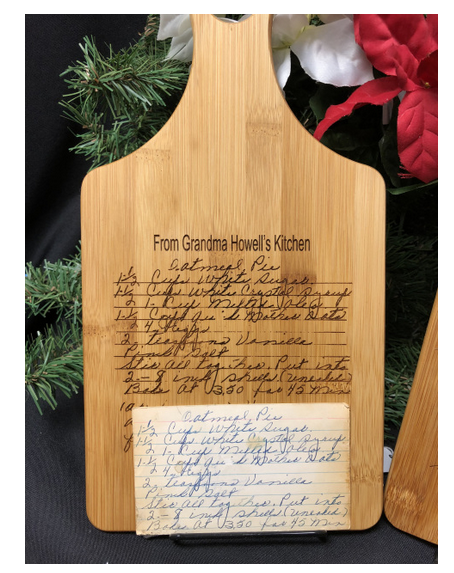 From Grandma Howell's Kitchen
Oatmeal Pie
1½ Cups White Sugar
1½ Cups White Crystal Syrup
2 1- Cup Melted Oleo
1½ Cups Qu Mother Oats
2 4 Eggs
2 teaspoons Vanilla
Pinch Salt
Stir All together. Put into
2 - 8 inch shells (uneaked)
Bake At 350 for 45 Min
Oatmeal Pie
1½ Cups White Sugar.
1½ Cups White Crystal Syrup
2 1- Cup Melted Oleo
1½ Cups Qu Mother Oats
2 4 Eggs
2 teaspoons Vanilla
Pinch Salt
Stir All together. Put into
2 - 8 inch shells (uneaked)
Bake At 350 for 45 Min